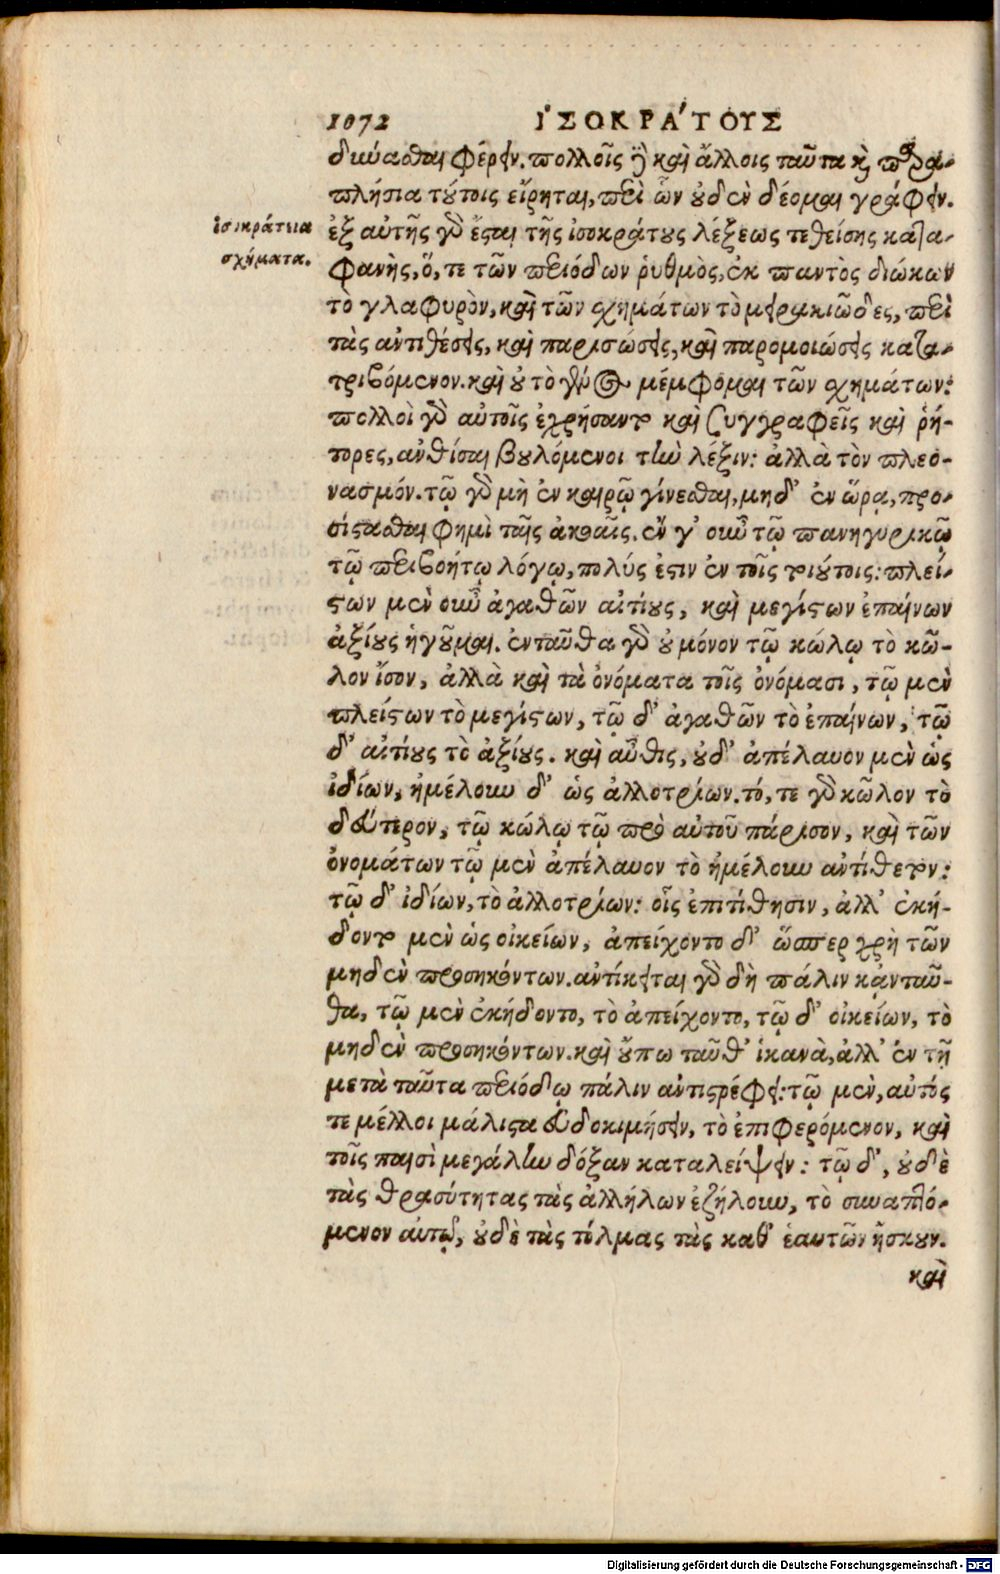 1072 ἸΣΟΚΡΆΤΟΥΣ
δικύασθαι φέρειν. πολλοῖς ἢ καὶ ἄλλοις ταῦτα καὶ παρα-
πλήσια τούτοις εἴρηται, περὶ ὧν οὐδὲν δέομαι γράφειν.
ἰσοκράτεια
σχήματα.
ἐξ αὐτῆς γὰρ ἔσται τῆς ἰσοκράτους λέξεως τεθείσης κατα-
φανὴς, ὅ, τε τῶν περιόδων ῥυθμὸς, ἐκ παντὸς διώκων
τὸ γλαφυρὸν, καὶ τῶν σχημάτων τὸ μειρακιῶδες, περὶ
τὰς ἀντιθέσεις, καὶ παρισώσεις, καὶ παρομοιώσεις κατα-
τριβόμενον. καὶ οὐ τὸ γένος μέμφομαι τῶν σχημάτων:
πολλοὶ γὰρ αὐτοῖς ἐχρήσαντο καὶ συγγραφεῖς καὶ ῥή-
τορες, ἀνθίσαι βουλόμενοι τὴν λέξιν: ἀλλὰ τὸν πλεο-
νασμόν. τῷ γὰρ μὴ ἐν καιρῷ γίνεσθαι, μηδ' ἐν ὥρᾳ, προ-
σίστασθαι φημὶ ταῖς ἀκοαῖς. ἐν γ' οὖν τῷ πανηγυρικῷ
τῷ περιβοήτῳ λόγῳ, πολύς ἐστιν ἐν τοῖς τοιούτοις: πλεί-
στων μὲν οὖν ἀγαθῶν αἰτίους, καὶ μεγίστων ἐπαίνων
ἀξίους ἡγοῦμαι. ἐνταῦθα γὰρ οὐ μόνον τῷ κώλῳ τὸ κῶ-
λον ἴσον, ἀλλὰ καὶ τὰ ὀνόματα τοῖς ὀνόμασι, τῷ μὲν
πλείστων τὸ μεγίστων, τῷ δ' ἀγαθῶν τὸ ἐπαίνων, τῷ
δ' αἰτίους τὸ ἀξίους. καὶ αὖθις, οὐδ' ἀπέλαυον μὲν ὡς
ἰδίων, ἠμέλουν δ' ὡς ἀλλοτρίων. τό, τε γὰρ κῶλον τὸ
δεύτερον, τῷ κώλῳ τῷ πρὸ αὐτοῦ πάρισον, καὶ τῶν
ὀνομάτων τῷ μὲν ἀπέλαυον τὸ ἠμέλουν ἀντίθετον:
τῷ δ' ἰδίων, τὸ ἀλλοτρίων: οἷς ἐπιτίθησιν, ἀλλ' ἐκή-
δοντο μὲν ὡς οἰκείων, ἀπείχοντο δ' ὥσπερ χρὴ τῶν
μηδὲν προσηκόντων. ἀντίκειται γὰρ δὴ πάλιν κἀνταῦ-
θα, τῷ μὲν ἐκήδοντο, τὸ ἀπείχοντο, τῷ δ' οἰκείων, τὸ
μηδὲν προσηκόντων. καὶ οὔπω ταῦθ' ἱκανὰ, ἀλλ' ἐν τῇ
μετὰ ταῦτα περιόδῳ πάλιν ἀντιστρέφει: τῷ μὲν, αὐτός
τε μέλλοι μάλιστα εὐδοκιμήσειν, τὸ ἐπιφερόμενον, καὶ
τοῖς παισὶ μεγάλην δόξαν καταλείψειν: τῷ δ', οὐδὲ
τὰς θρασύτητας τὰς ἀλλήλων ἐζήλουν, τὸ συναπτό-
μενον αὐτῷ, οὐδὲ τὰς τόλμας τὰς καθ' ἑαυτῶν ἤσκουν.
καὶ
Digitalisierung gefördert durch die Deutsche Forschungsgemeinschaft - DFG